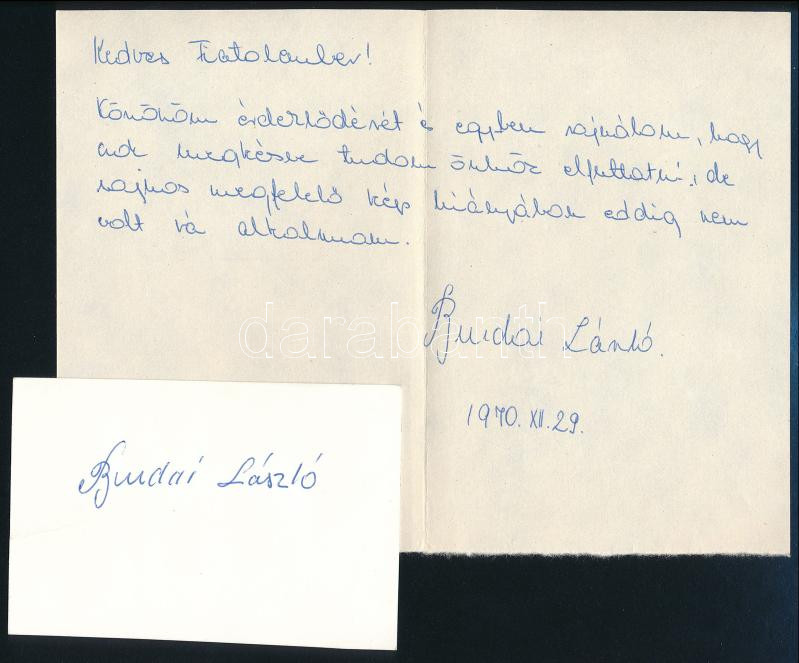 Kedves Fiatalember!
Köszönöm érdeklődését és egyben sajnálom, hogy
csak megkésve tudom önhöz eljuttatni, de
sajnos megfelelő kép hiányában eddig nem
volt rá alkalmam.
Budai László.
1970. XII. 29.
Budai László
darabanth